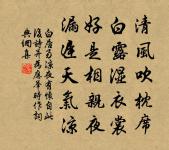 清風吹枕席
白露濕衣裳
好是相親夜
漏遲天氣涼
白居易涼夜有懷自此
後詩并為應舉時作詞
典網真